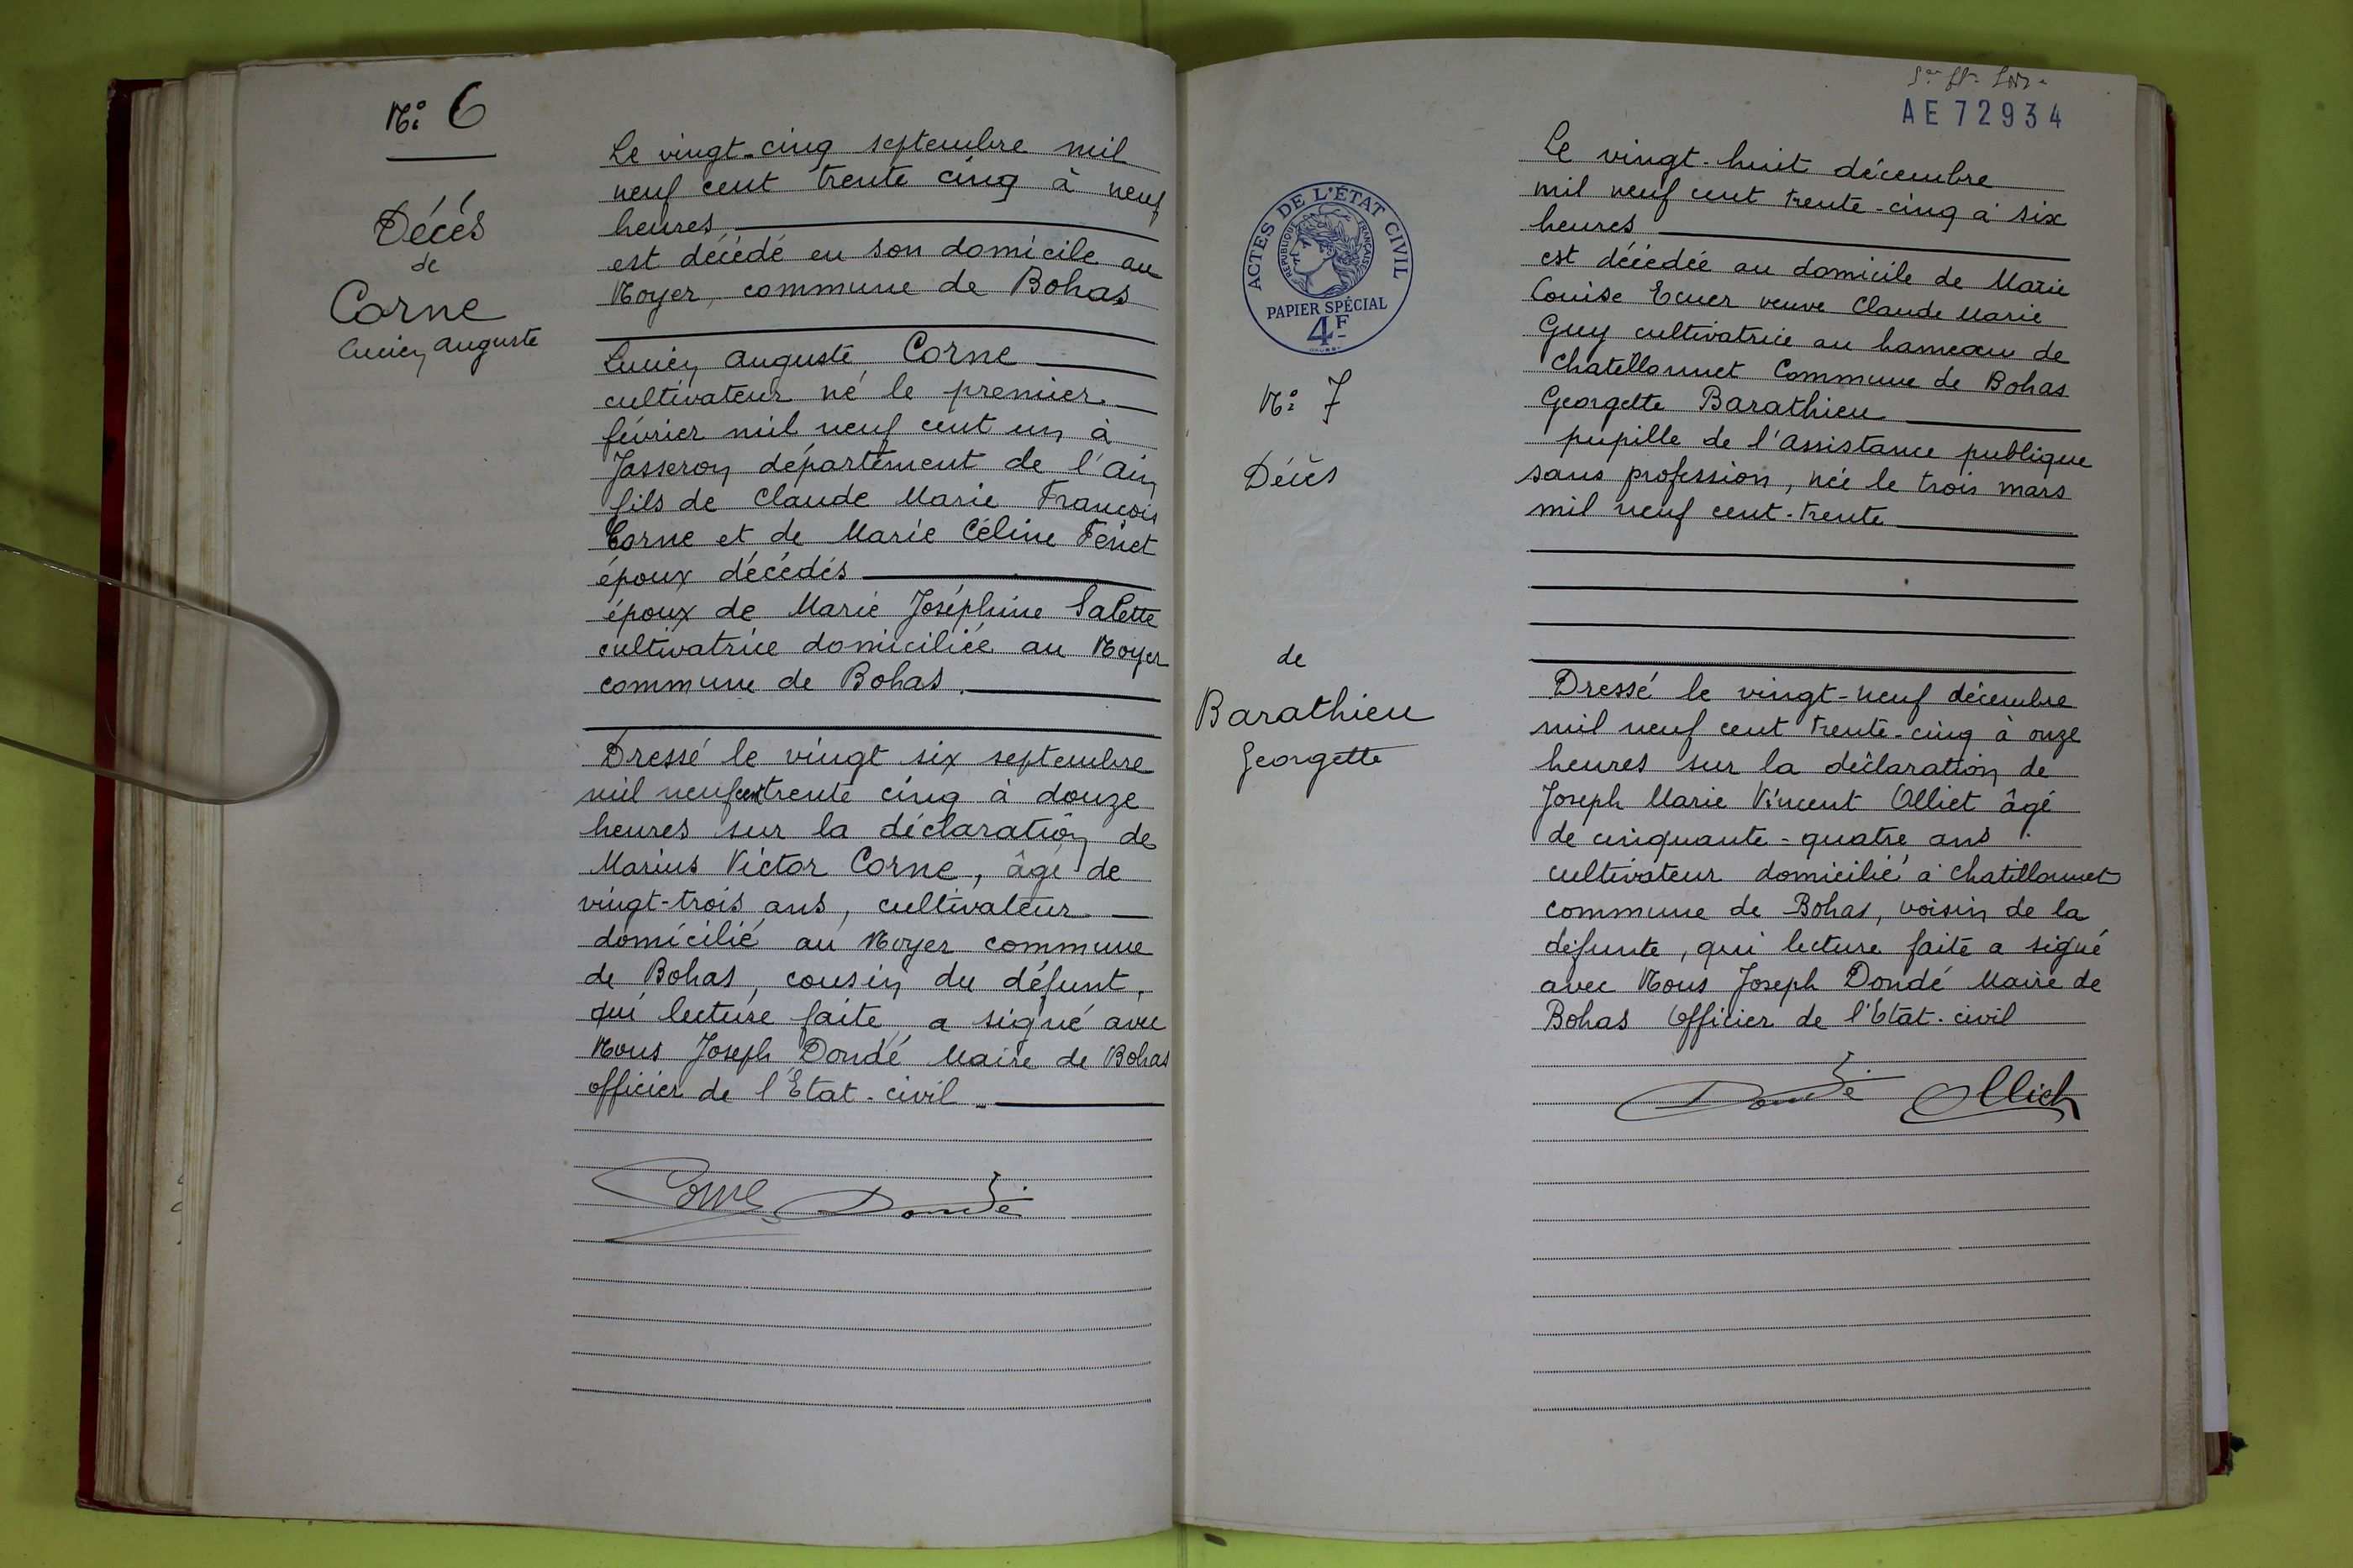 N° 6
Décés
de
Corne
Lucien Auguste
Le vingt-cinq septembre mil
neuf cent trente cinq à neuf
heures
est décédé en son domicile au
Noyer, commune de Bohas
Lucien Auguste Corne
cultivateur né le premier
février mil neuf cent un à
Jasseron département de l'Ain
fils de Claude Marie François
Corne et de Marie Céline
époux décédés
époux de Marie Joséphine Salette
cultivatrice domiciliée au Noyer
commune de Bohas.
Dressé le vingt six septembre
mil neuf cent trente cinq à douze
heures sur la déclaration de
Marius Victor Corne, âgé de
vingt-trois ans, cultivateur
domicilié au Noyer commune
de Bohas, cousin du défunt,
qui lecture faite, a signé avec
Nous Joseph Dondé Maire de Bohas
officier de l'Etat-civil
Corne Dondé
AE72934
ACTES DE L'ÉTAT CIVIL
RÉPUBLIQUE FRANÇAISE
PAPIER SPÉCIAL
4F
N° 7
Décès
de
Barathieu
Georgette
Le vingt-huit décembre
mil neuf cent trente-cinq à six
heures
est décédée au domicile de Marie
Louise Ecuer veuve Claude Marie
Guy cultivatrice au hameau de
Chatellonnet Commune de Bohas
Georgette Barathieu
pupille de l'Assistance publique
sans profession, née le trois mars
mil neuf cent-trente
Dressé le vingt-neuf décembre
mil neuf cent trente-cinq à onze
heures sur la déclaration de
Joseph Marie Vincent Olliet âgé
de cinquante-quatre ans
cultivateur domicilié à Chatillonnet
commune de Bohas, voisin de la
défunte, qui lecture faite a signé
avec Nous Joseph Dondé Maire de
Bohas Officier de l'Etat-civil
Dondé Olliet